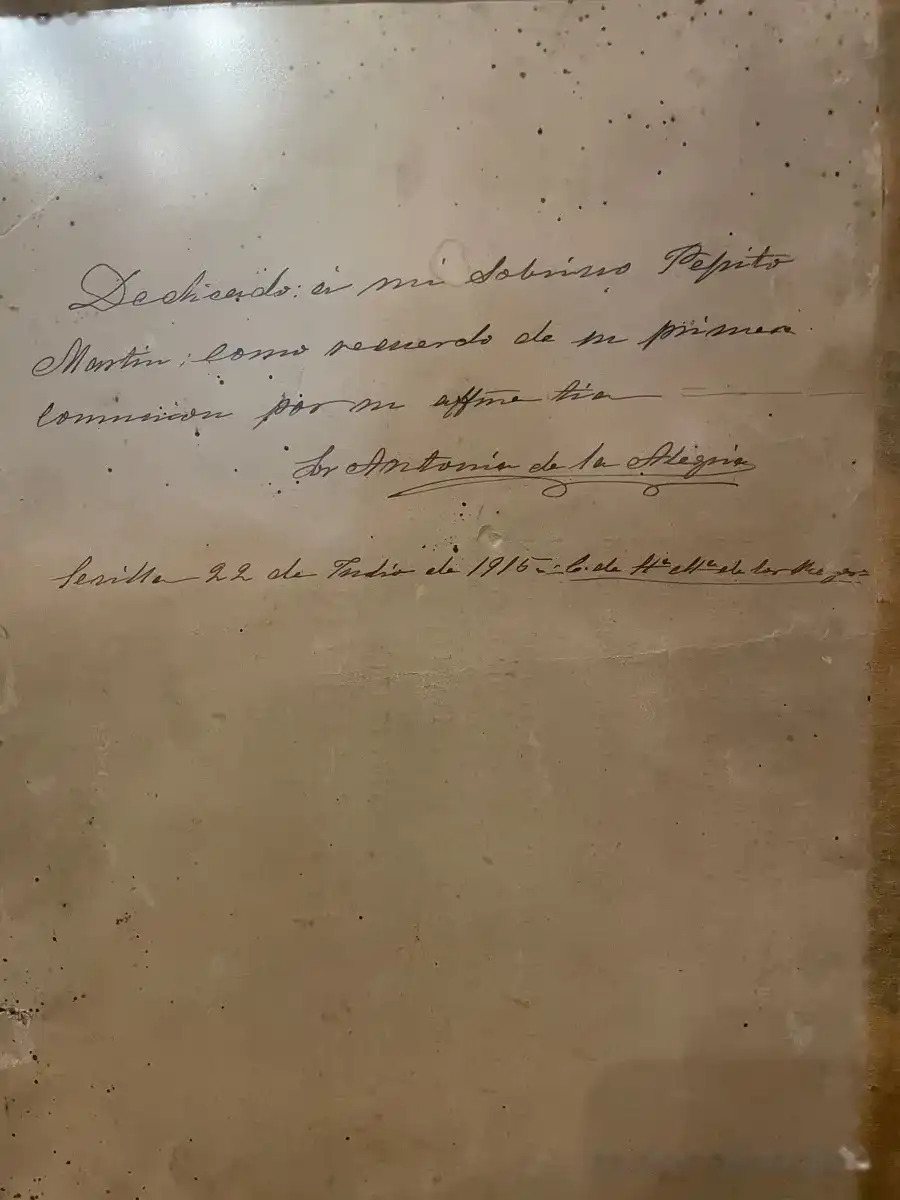 Dedicado: á mi Sobrino Pepito
Martin; como recuerdo de su primera
comunion por su affma tia
Sor Antonia de la Alegria
Sevilla 22 de Julio de 1915.- C. de Sta Ma de los Reyes